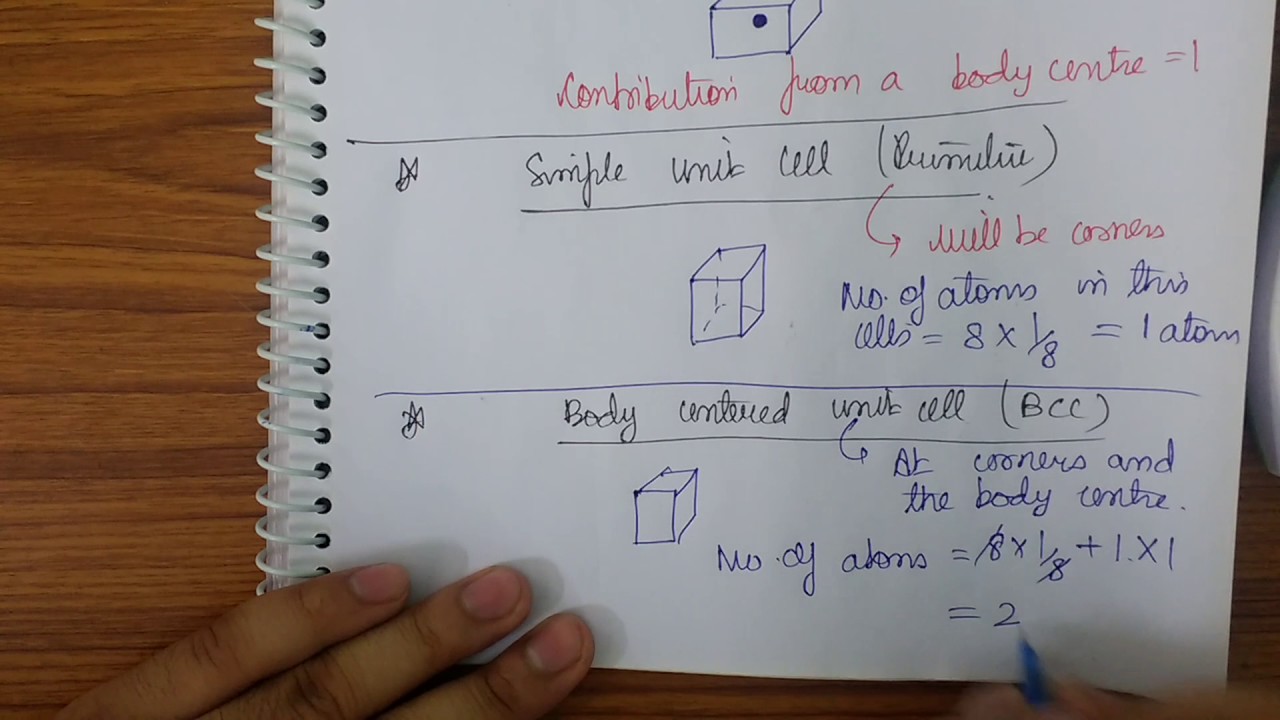 Contribution from a body centre = 1
Simple unit cell (Primitive)
will be corners
No. of atoms in this
cells = 8 × 1/8 = 1 atom
Body centered unit cell (BCC)
At corners and
the body centre.
No. of atoms = 8 × 1/8 + 1 × 1
= 2